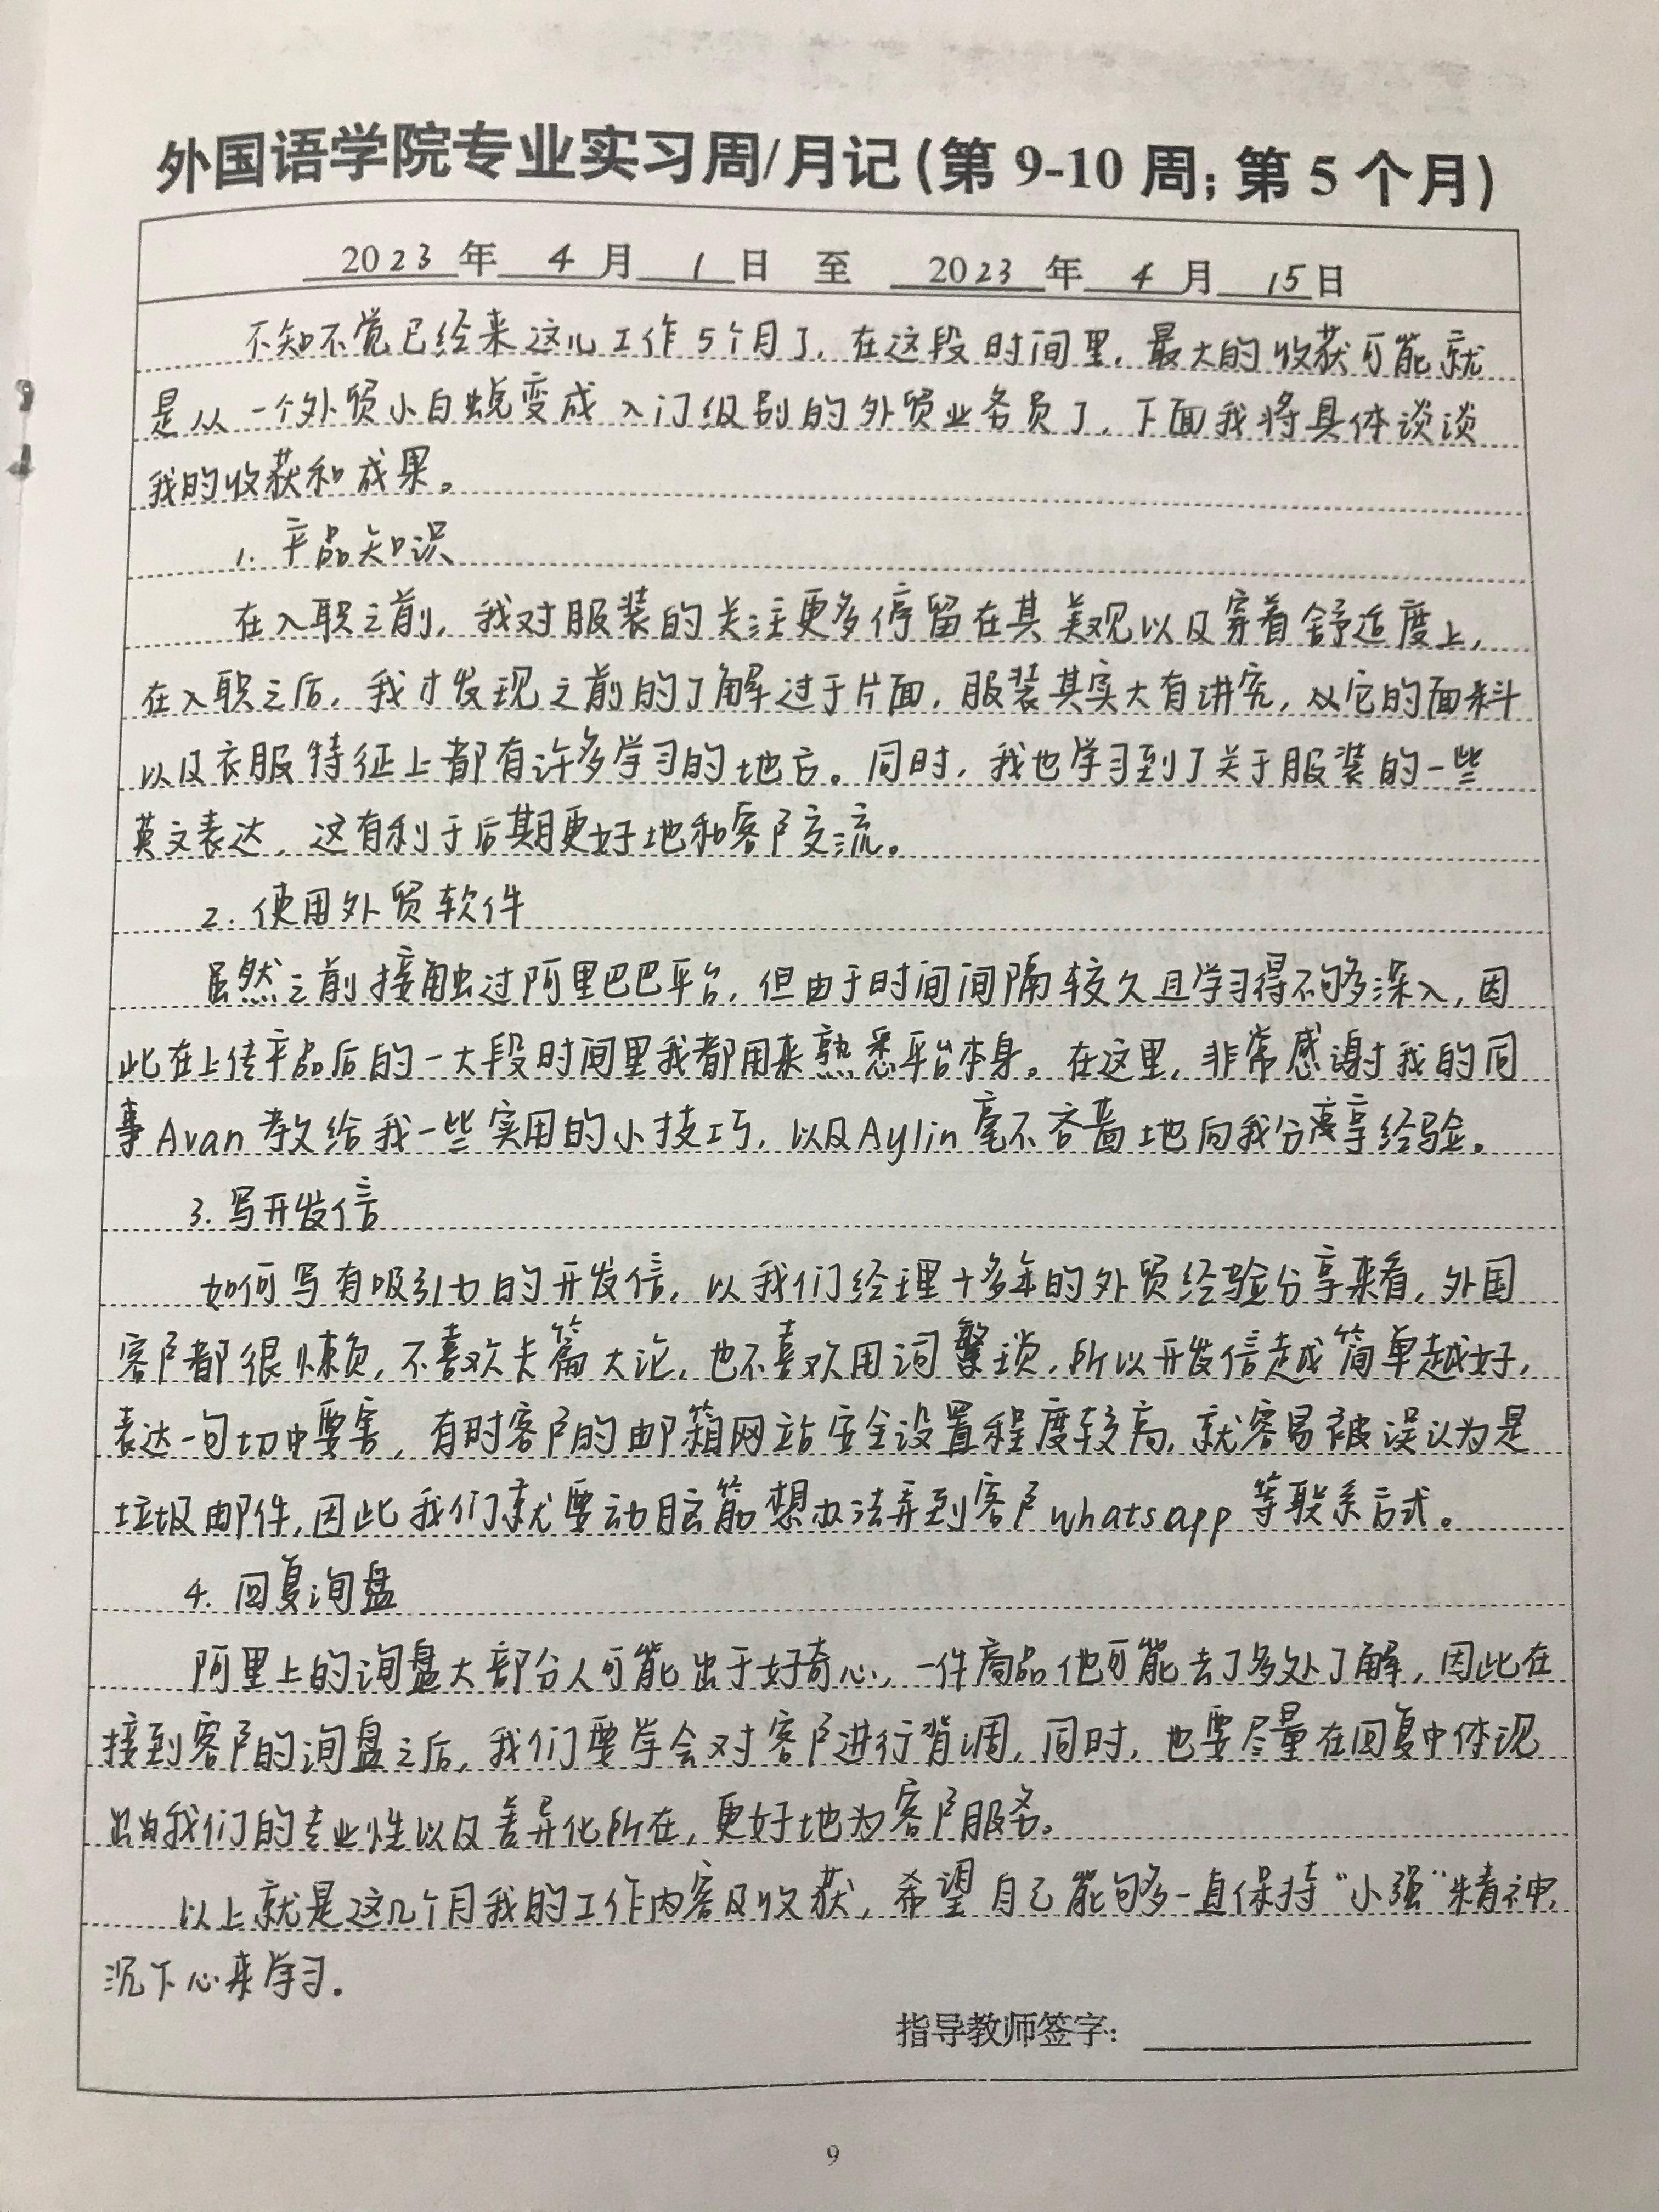 外国语学院专业实习周/月记(第 9-10 周; 第 5 个月)
2023 年 4 月 1 日 至 2023 年 4 月 15 日
不知不觉已经来这儿工作5个月了,在这段时间里,最大的收获可能就
是从一个外贸小白蜕变成入门级别的外贸业务员了,下面我将具体谈谈
我的收获和成果。
1. 产品知识
在入职之前,我对服装的关注更多停留在其美观以及穿着舒适度上,
在入职之后,我才发现之前的了解过于片面,服装其实大有讲究,从它的面料
以及衣服特征上都有许多学习的地方。同时,我也学习到了关于服装的一些
英文表达,这有利于后期更好地和客户交流。
2. 使用外贸软件
虽然之前接触过阿里巴巴平台,但由于时间间隔较久且学习得不够深入,因
此在上传产品后的一大段时间里我都用来熟悉平台本身。在这里,非常感谢我的同
事Avan教给我一些实用的小技巧,以及Aylin毫不吝啬地向我分享经验。
3. 写开发信
如何写有吸引力的开发信,以我们经理十多年的外贸经验分享来看,外国
客户都很懒,不喜欢长篇大论,也不喜欢用词繁琐,所以开发信越简单越好,
表达一句切中要害,有时客户的邮箱网站安全设置程度较高,就容易被误认为是
垃圾邮件,因此我们就要动脑筋想办法弄到客户whatsapp等联系方式。
4. 回复询盘
阿里上的询盘大部分人可能出于好奇心,一件商品他可能去了多处了解,因此在
接到客户的询盘之后,我们要学会对客户进行背调,同时,也要尽量在回复中体现
出我们的专业性以及差异化所在,更好地为客户服务。
以上就是这几个月我的工作内容及收获,希望自己能够一直保持“小强”精神,
沉下心来学习.
指导教师签字:
9